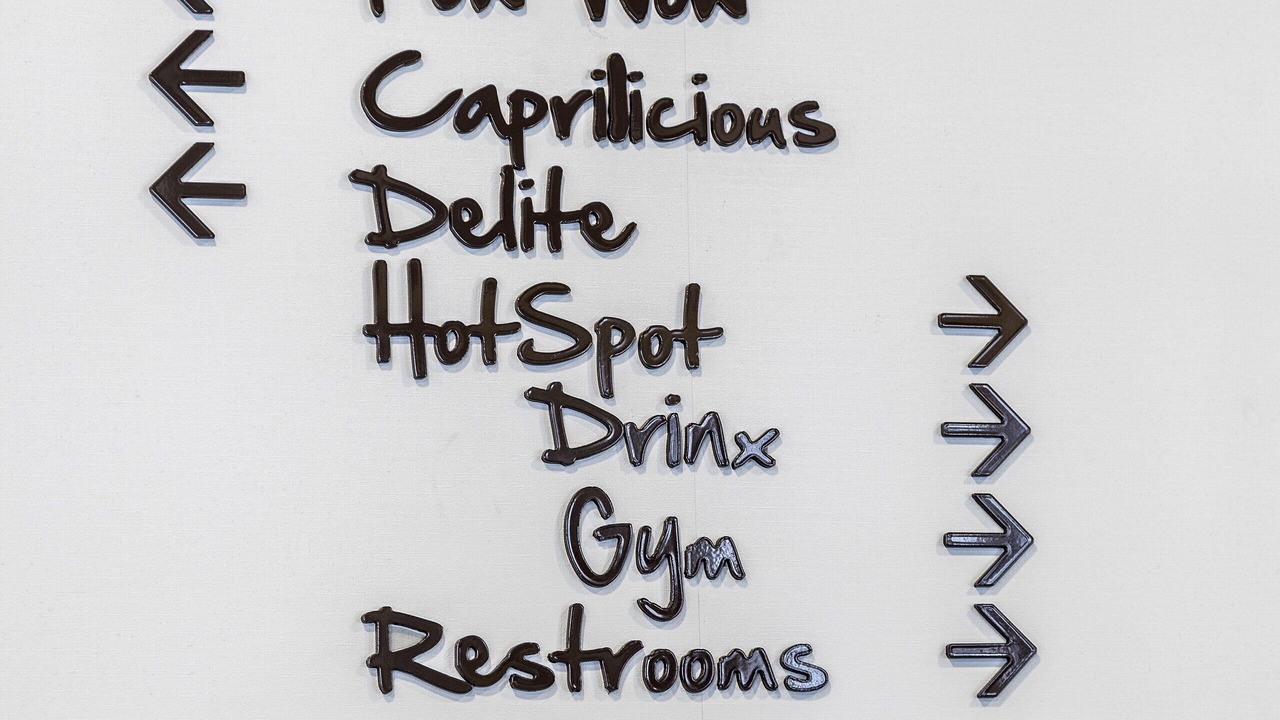 Caprilicious
Delite
HotSpot
Drinx
Gym
Restrooms